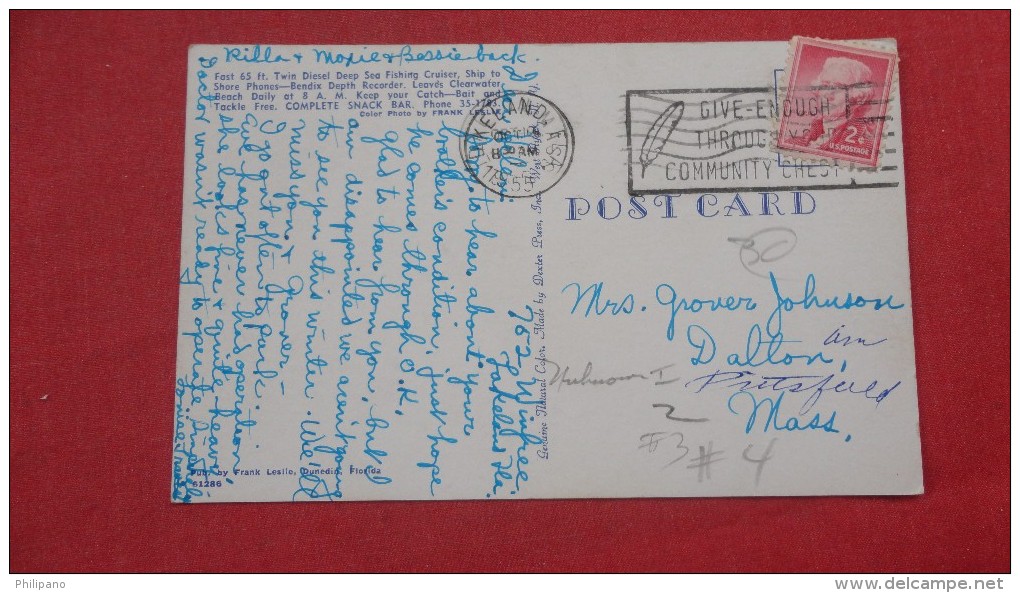 Rilla & Moxie & Bessie back.
Fast 65 ft. Twin Diesel Deep Sea Fishing Cruiser, Ship to
Shore Phones—Bendix Depth Recorder. Leaves Clearwater
Beach Daily at 8 A. M. Keep your Catch—Bait and
Tackle Free. COMPLETE SNACK BAR. Phone 35-1783.
Color Photo by FRANK LESLIE
762 Winfree
Lakeland Fla.
to hear about your
condition, just hope
he comes through O.K.
glad to hear from you, but
disappointed we aren't going
to see you this winter. We'll
miss you & Grover
often to park.
never his operation,
she looks fine & quite heavy,
Doctor wasn't ready to operate
Pub. by Frank Leslie, Dunedin, Florida
61286
Genuine Natural Color, Made by Dexter Press, Inc., West
LAKELAND
8 AM
1955
GIVE-ENOUGH
THROUGH YOUR
COMMUNITY CHEST
2¢
U.S. POSTAGE
POST CARD
30
Mrs. Grover Johnson
Dalton,
am
Unknown I
Pittsfield
2
Mass.
#3
# 4
Philipano
www.delcampe.net